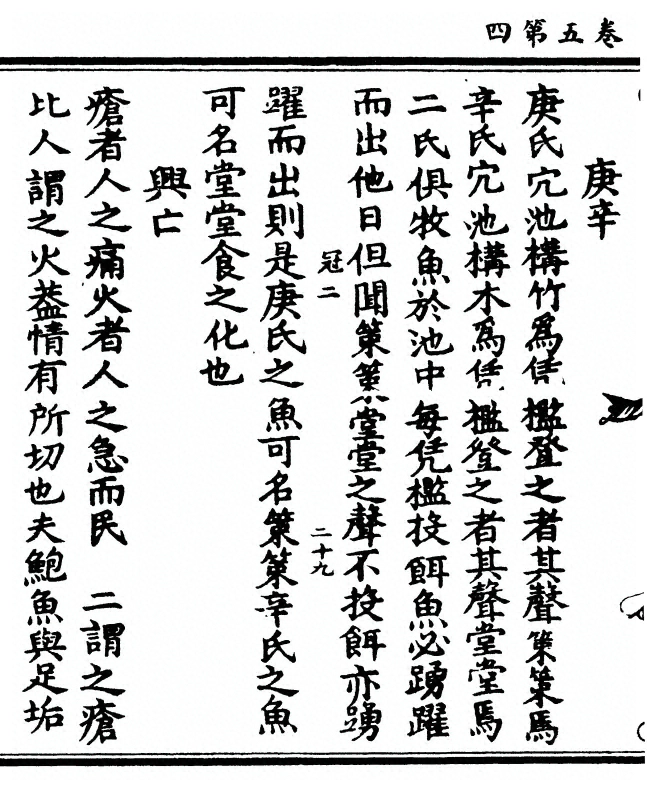 卷五第四
庚辛
庚氏穴池構竹為凭檻登之者其聲策策焉
辛氏穴池構木為凭檻登之者其聲堂堂焉
二氏俱牧魚於池中每凭檻投餌魚必踴躍
而出他日但聞策策堂堂之聲不投餌亦踴
冠二
二十九
躍而出則是庚氏之魚可名策策辛氏之魚
可名堂堂食之化也
興亡
瘡者人之痛火者人之急而民 二謂之瘡
比人謂之火葢情有所切也夫鮑魚與足垢